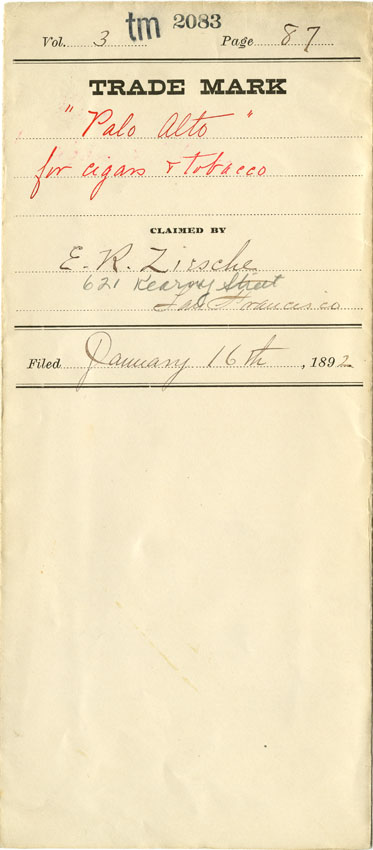 tm 2083
Vol. 3 Page 87
TRADE MARK
"Palo Alto"
for cigars & tobacco
CLAIMED BY
E. R. Zirsche
621 Kearny Street
San Francisco
Filed January 16th, 1892